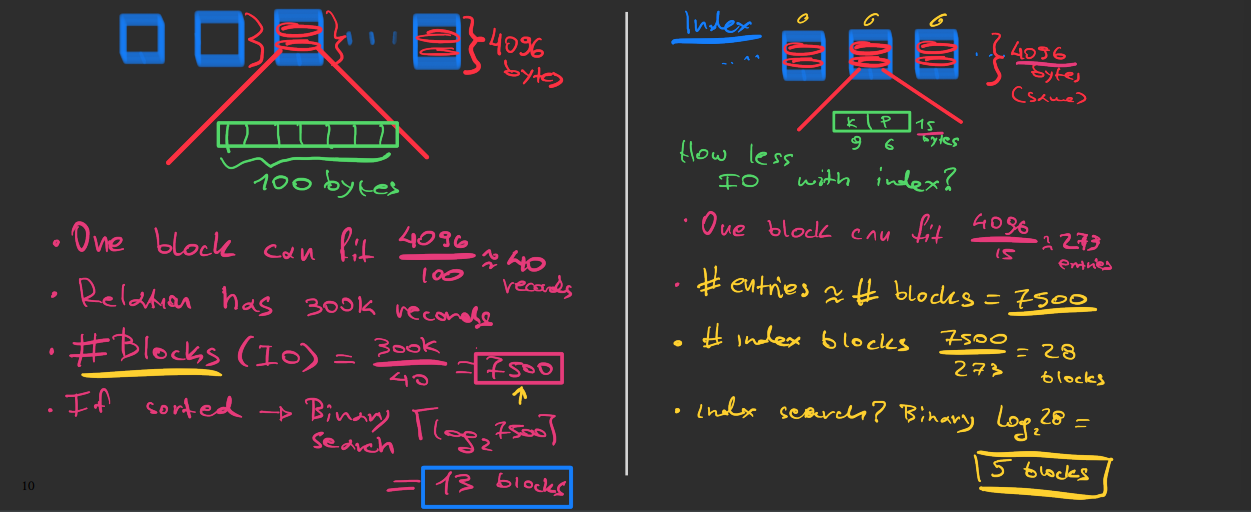 4096
bytes
100 bytes
• One block can fit 4096/100 ≈ 40 records
• Relation has 300K records
• #Blocks (IO) = 300K/40 = 7500
• If sorted → Binary search ⌈log₂7500⌉
= 13 blocks
10
Index
4096
bytes
(same)
K P 15 bytes
9 6
How less
IO with index?
• One block can fit 4096/15 ≈ 273 entries
• # entries ≈ # blocks = 7500
• # index blocks 7500/273 = 28 blocks
• index search? Binary log₂28 =
5 blocks